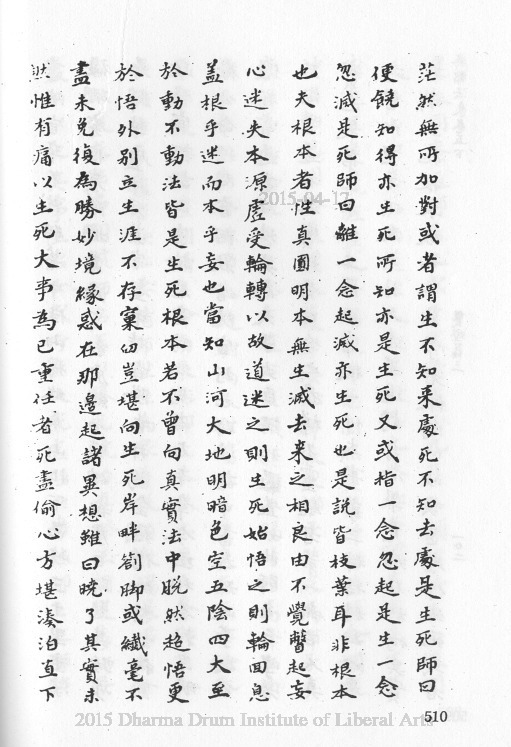 茫然無所加對或者謂生不知來處死不知去處是生死師曰
便饒知得亦生死所知亦是生死又或指一念忽起是生一念
忽滅是死師曰離一念起滅亦生死也是說皆枝葉耳非根本
也夫根本者性真圓明本無生滅去來之相良由不覺瞥起妄
心迷失本源虛受輪轉以故道迷之則生死始悟之則輪回息
蓋根乎迷而本乎妄也當知山河大地明暗色空五陰四大至
於動不動法皆是生死根本若不曾向真實法中脫然超悟更
於悟外別立生涯不存窠臼豈堪向生死岸畔劄脚或纖毫不
盡未免復為勝妙境緣惑在那邊起諸異想雖曰曉了其實未
然惟有痛以生死大事為己重任者死盡偷心方堪湊泊直下
2015-04-17
510
2015 Dharma Drum Institute of Liberal Arts